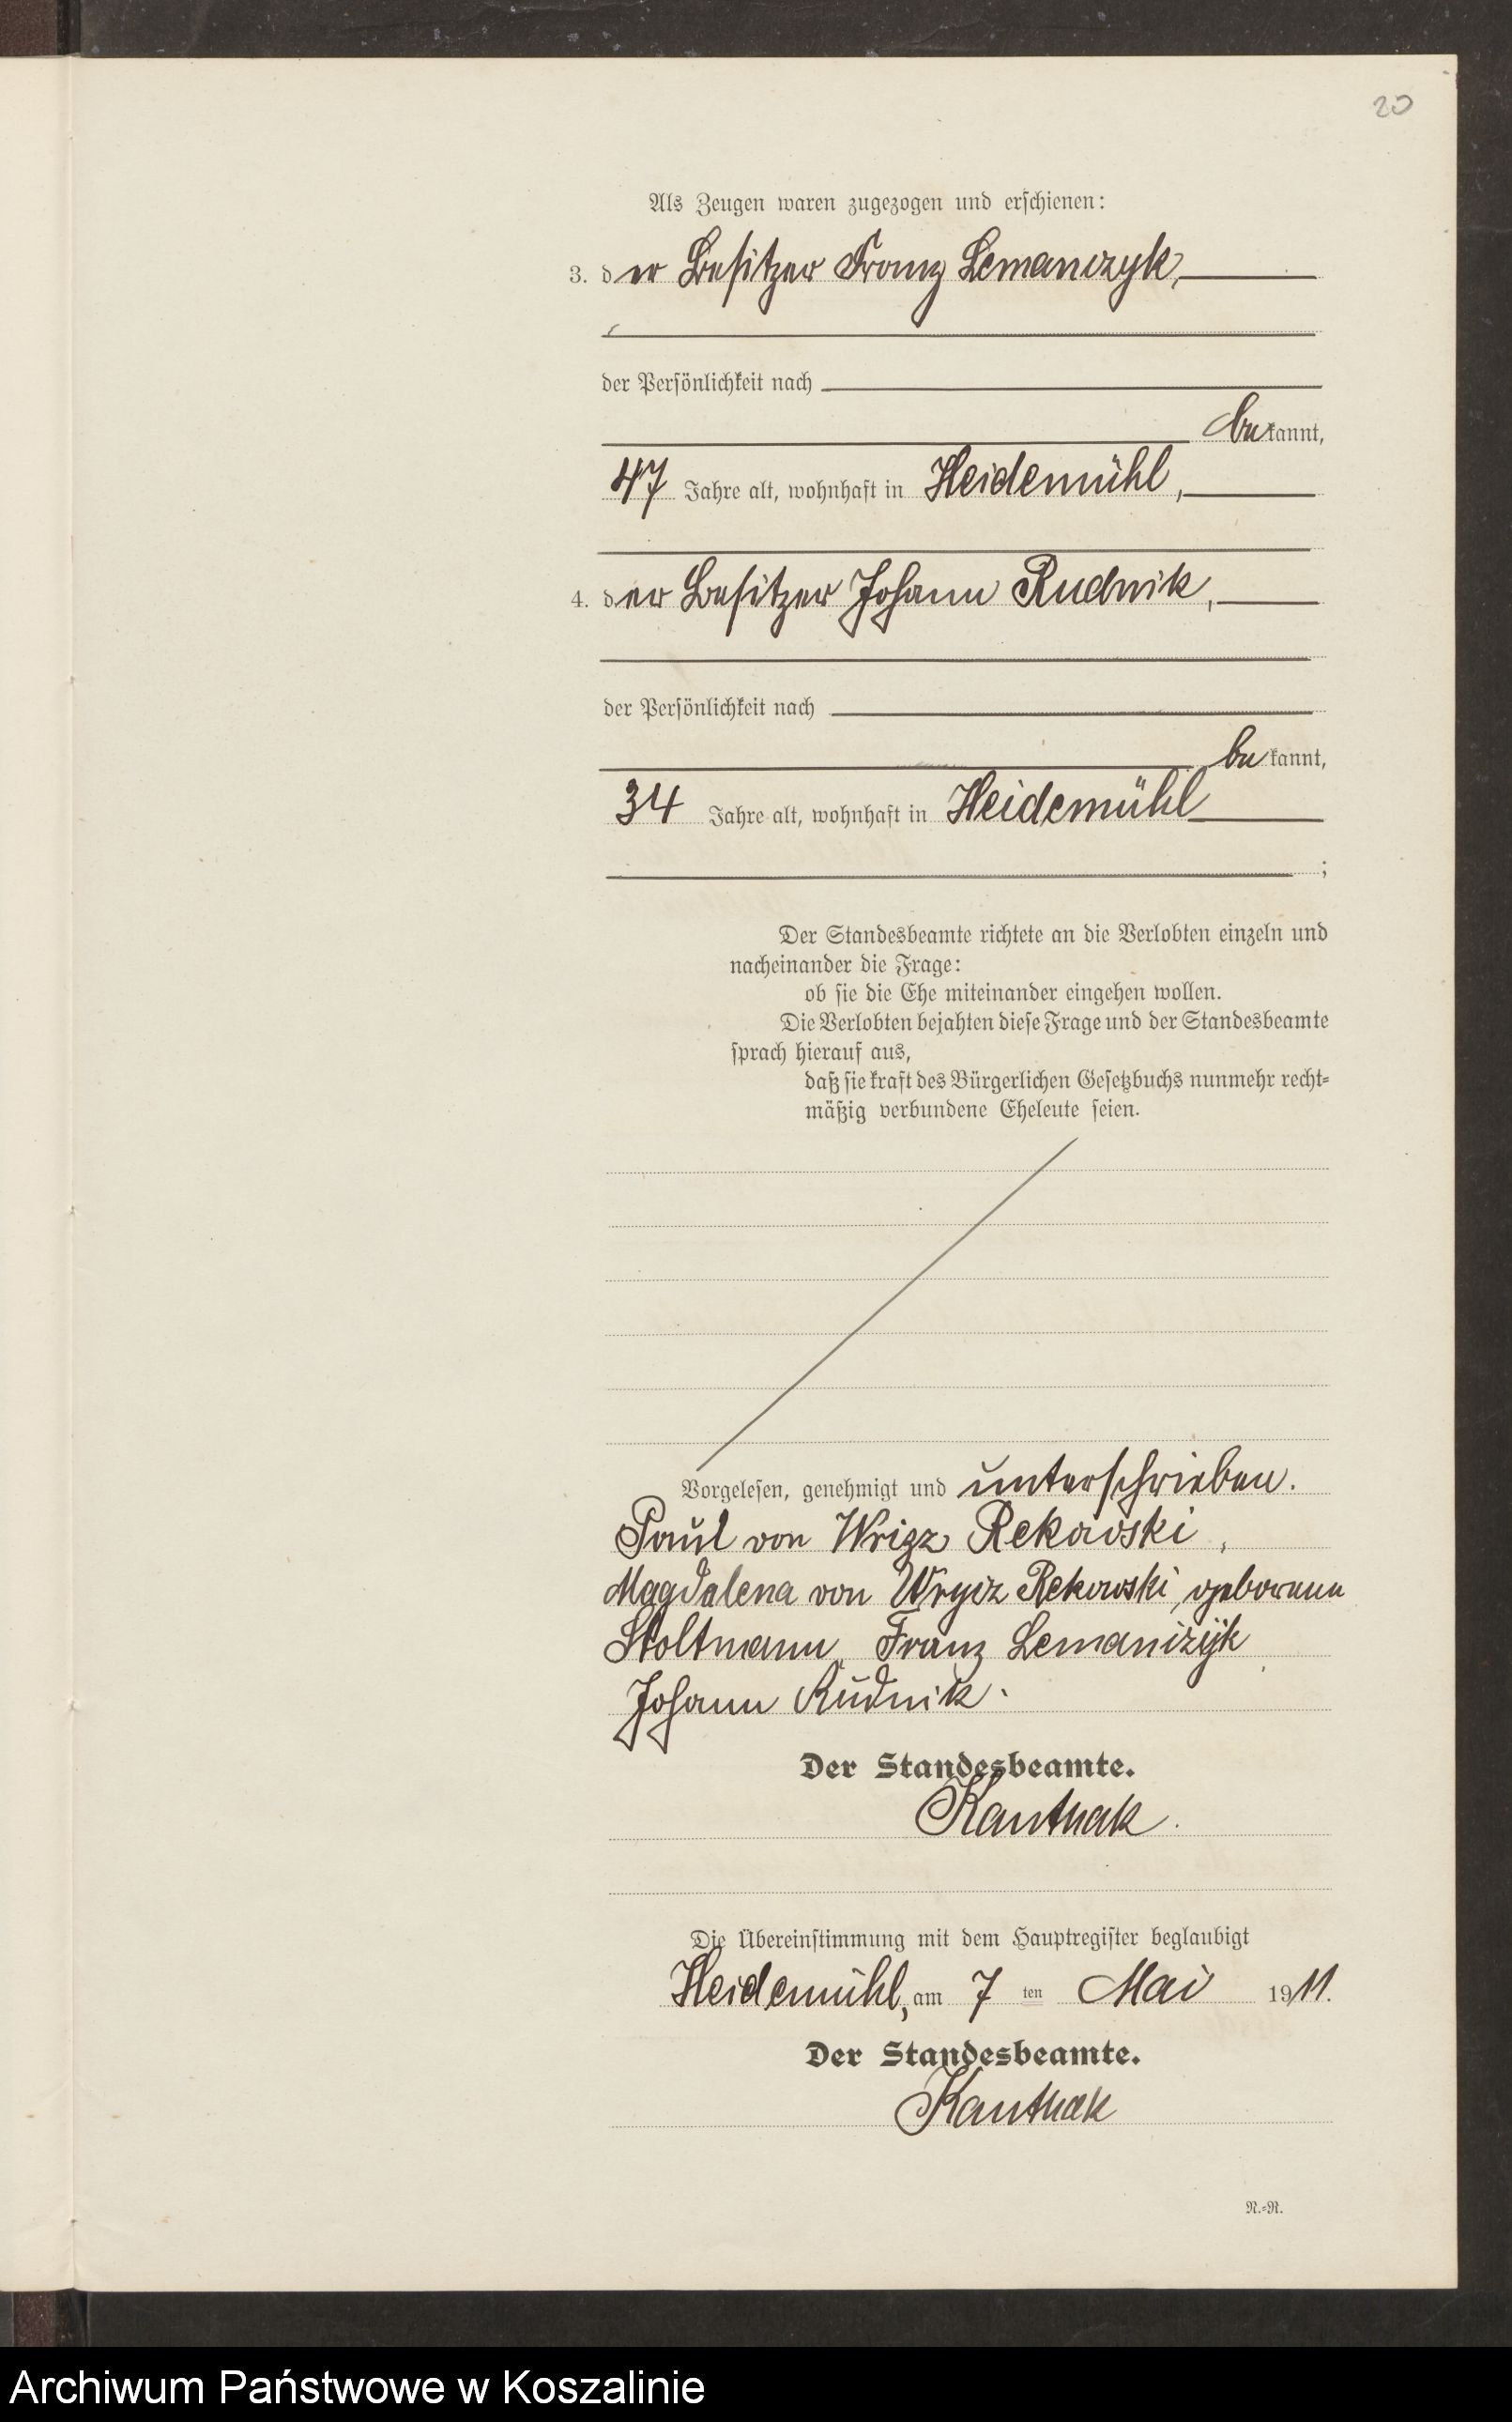 20
Als Zeugen waren zugezogen und erschienen:
3. der Besitzer Franz Lemanczyk,
der Persönlichkeit nach
bekannt,
47 Jahre alt, wohnhaft in Heidemühl,
4. der Besitzer Johann Rudnik,
der Persönlichkeit nach
bekannt,
34 Jahre alt, wohnhaft in Heidemühl
;
Der Standesbeamte richtete an die Verlobten einzeln und
nacheinander die Frage:
ob sie die Ehe miteinander eingehen wollen.
Die Verlobten bejahten diese Frage und der Standesbeamte
sprach hierauf aus,
daß sie kraft des Bürgerlichen Gesetzbuchs nunmehr recht-
mäßig verbundene Eheleute seien.
Vorgelesen, genehmigt und unterschrieben.
Paul von Wrigz Rekowski,
Magdalena von Wrycz Rekowski, geborene
Stoltmann, Franz Lemanczyk
Johann Rudnik.
Der Standesbeamte.
Kanthak.
Die Übereinstimmung mit dem Hauptregister beglaubigt
Heidemühl, am 7 ten Mai 1911.
Der Standesbeamte.
Kanthak
N.-R.
Archiwum Państwowe w Koszalinie